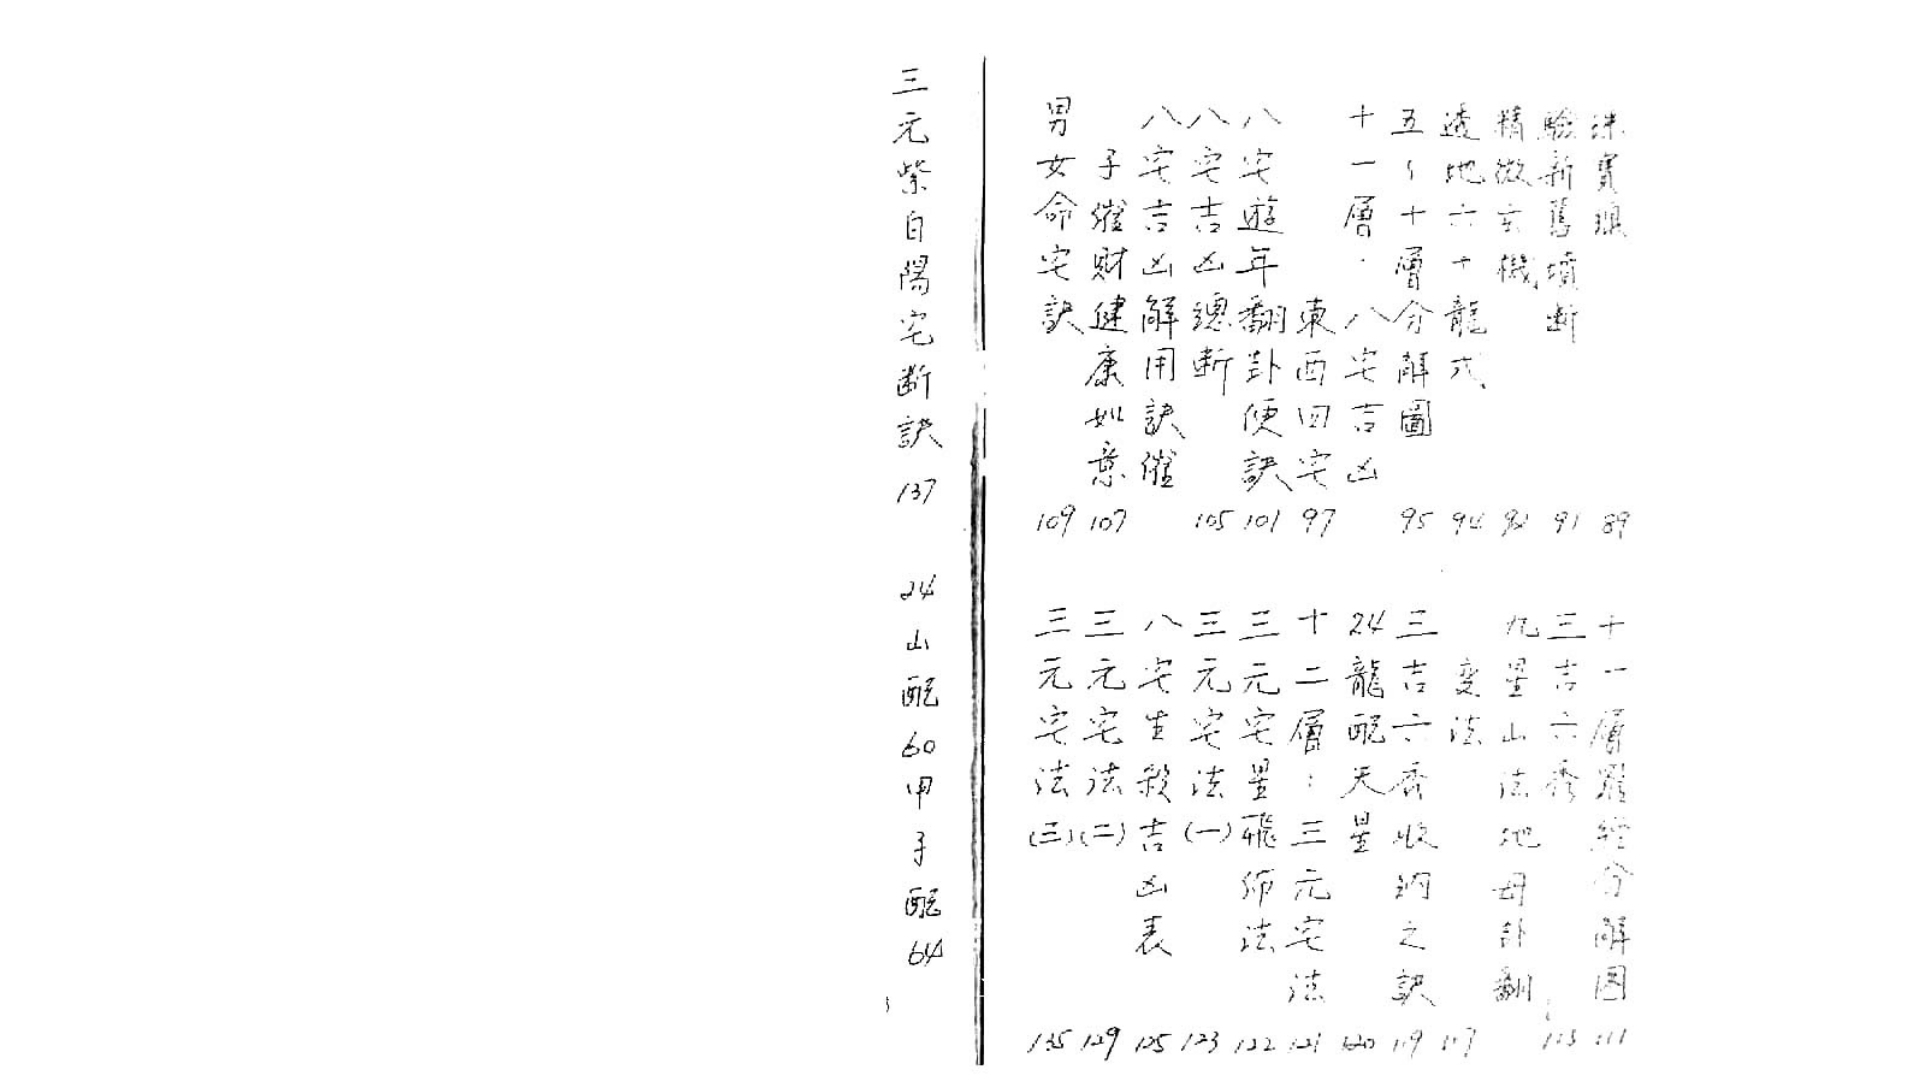 珠寶眼 89
驗新舊墳斷 91
精微玄機 92
透地六十龍式 94
五~十層分解圖 95
十一層·八宅吉凶
東西四宅 97
八宅遊年翻卦便訣 101
八宅吉凶總斷 105
八宅吉凶解用訣催
子催財健康如意 107
男女命宅訣 109
十一層羅經分解圖 111
三吉六秀 113
九星山法地母卦翻
變法 117
三吉六秀收納之訣 119
24龍配天星 120
十二層:三元宅法 121
三元宅星飛佈法 122
三元宅法(一) 123
八宅生殺吉凶表 125
三元宅法(二) 129
三元宅法(三) 135
三元紫白陽宅斷訣 137
24山配60甲子配64